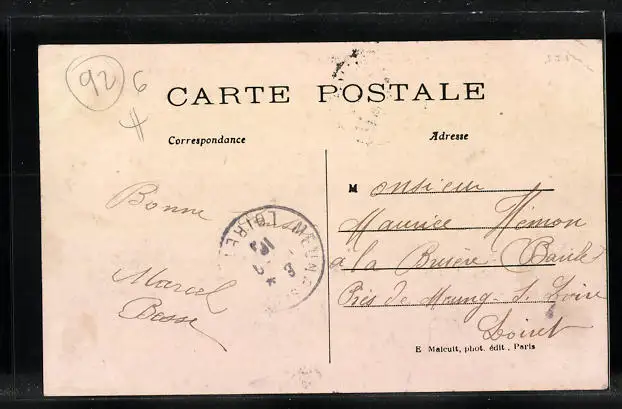 92 6
CARTE POSTALE
Correspondance
Adresse
Bonne
Marcel
Besse
LOIRET
Monsieur
Maurice Hémon
à la Bruère Baule
Près de Meung-s. Loire
Loiret
E Malcuit, phot. édit. Paris